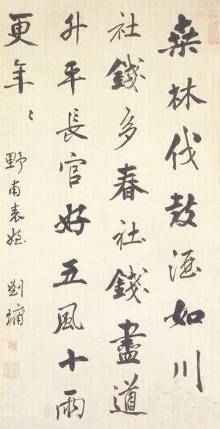 桑林伐鼓酒如川
社錢多春社錢盡道
升平長官好五風十雨
更年〻
野甫表姪 劉墉